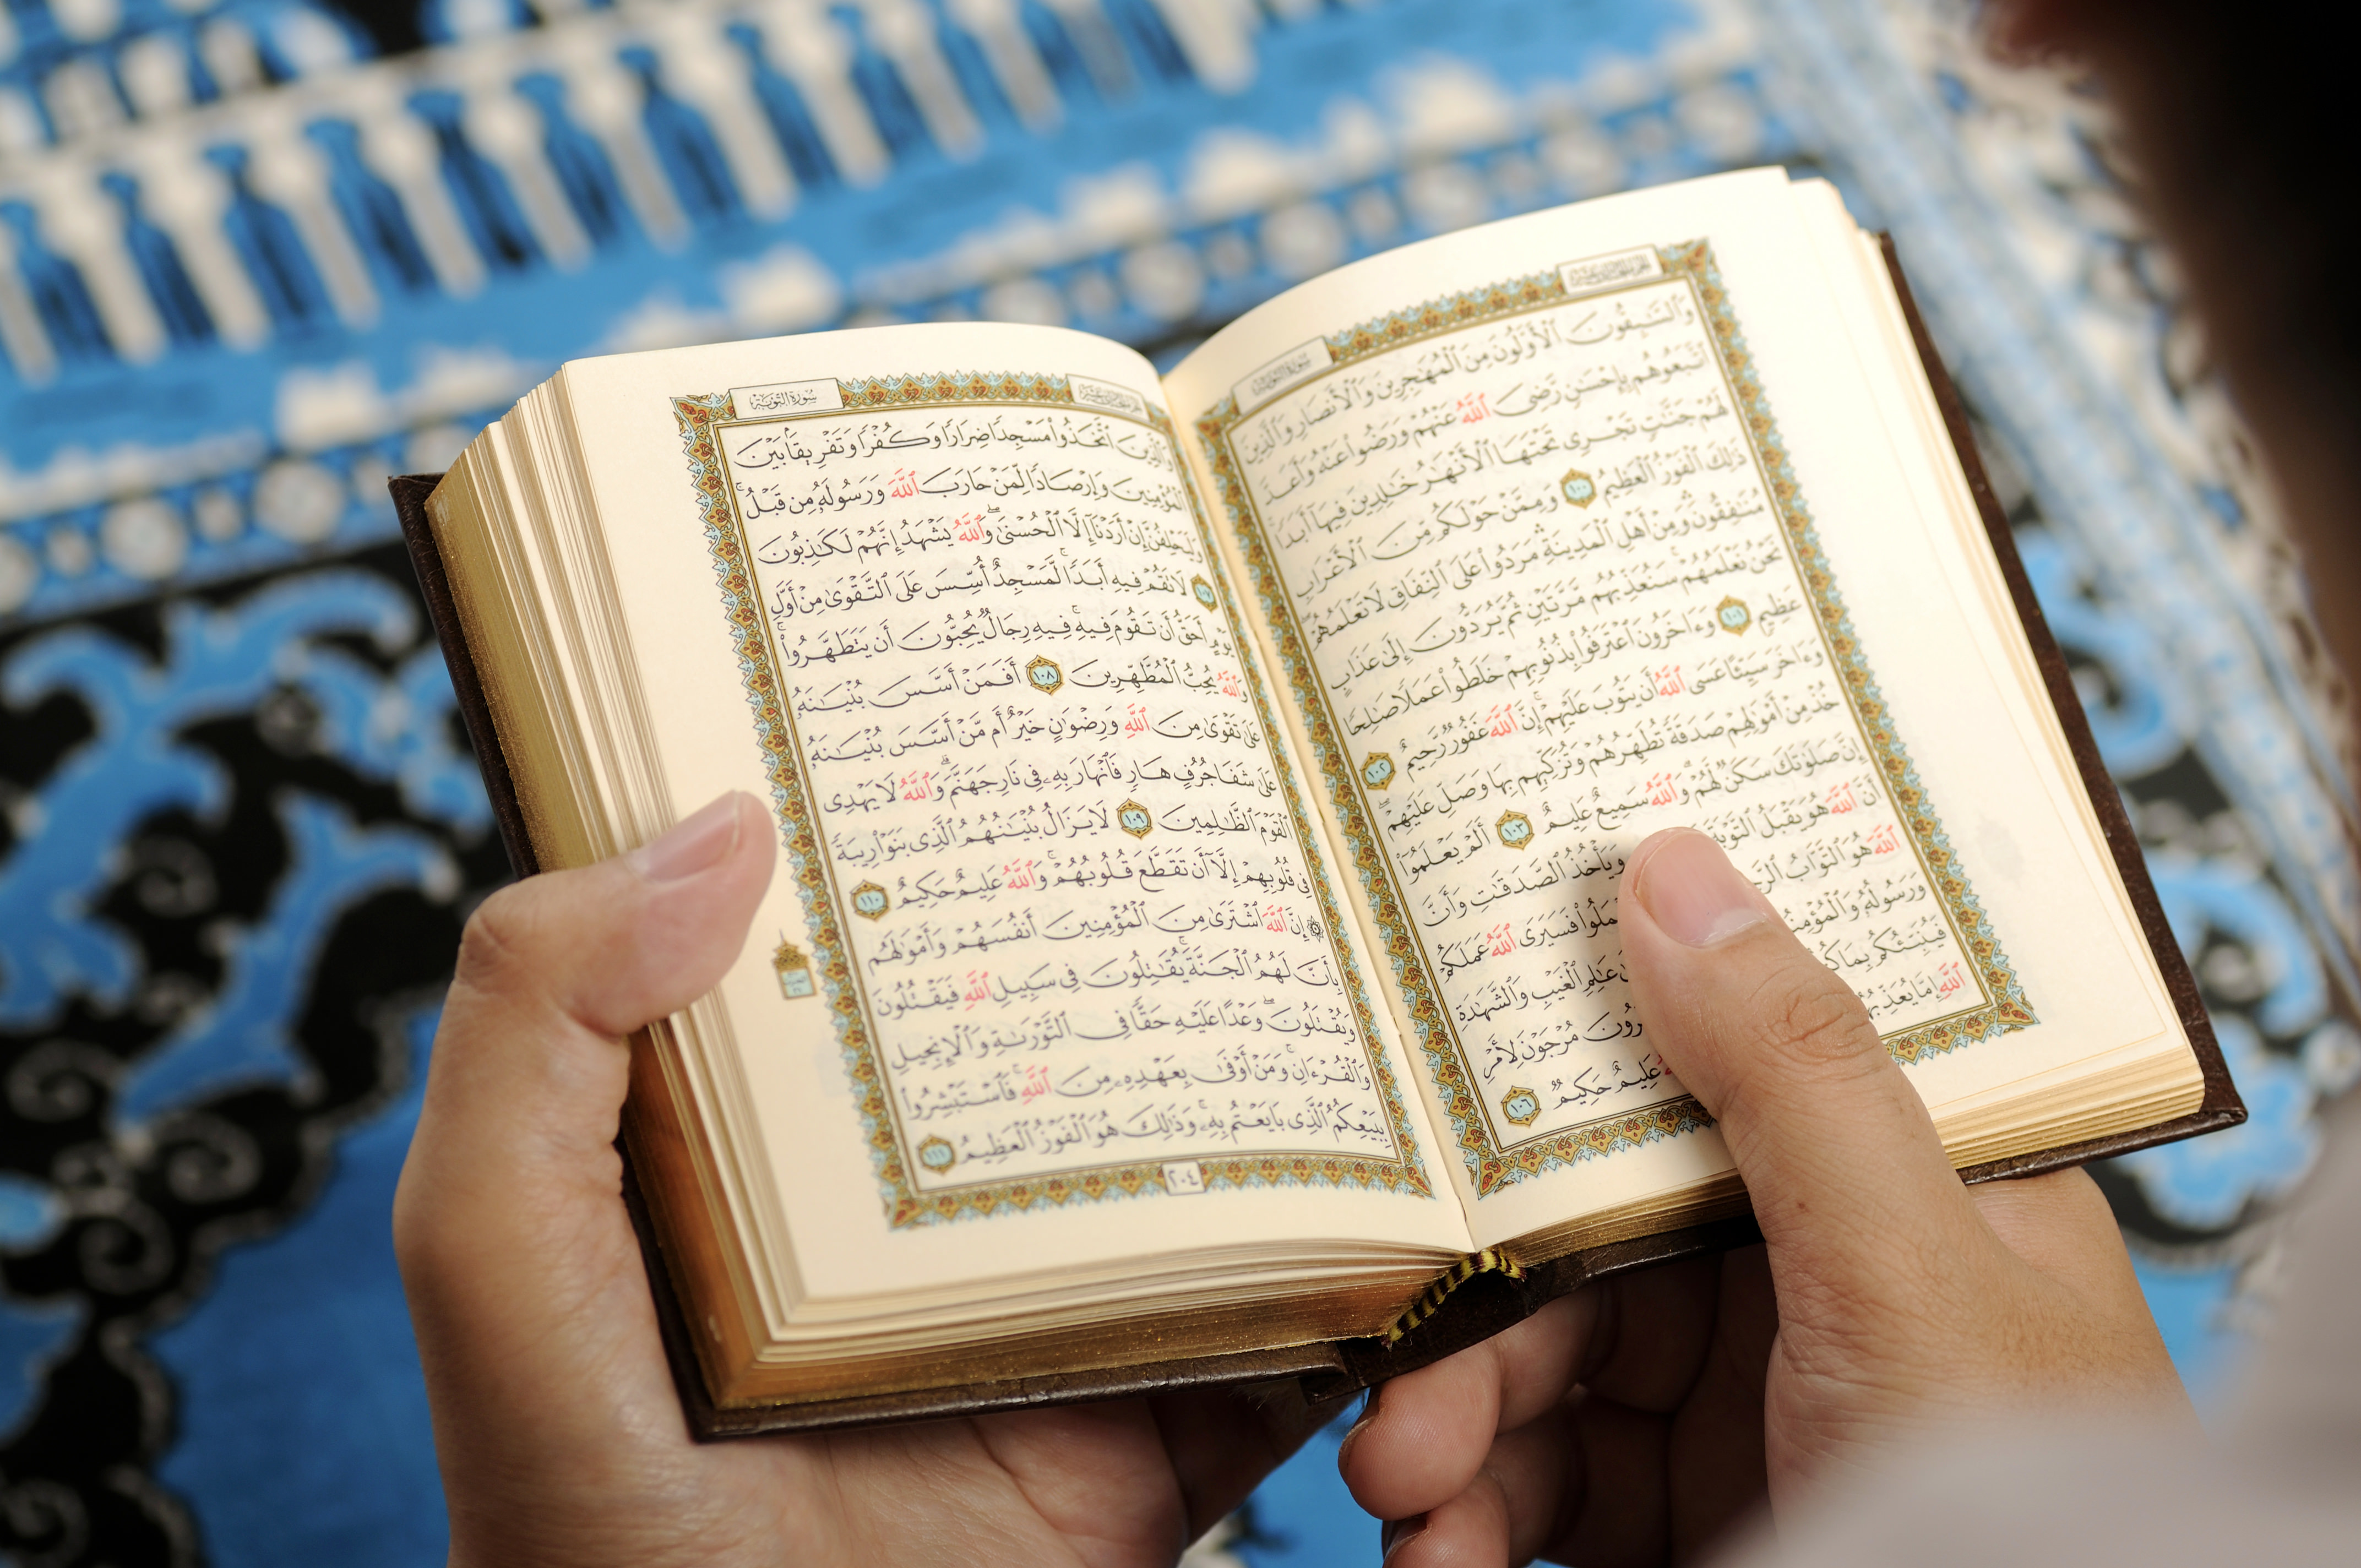 الجزء الحادي عشر
سورة التوبة
وَٱلسَّٰبِقُونَ ٱلْأَوَّلُونَ مِنَ ٱلْمُهَٰجِرِينَ وَٱلْأَنصَارِ وَٱلَّذِينَ
ٱتَّبَعُوهُم بِإِحْسَٰنٍ رَّضِىَ ٱللَّهُ عَنْهُمْ وَرَضُوا۟ عَنْهُ وَأَعَدَّ
لَهُمْ جَنَّٰتٍ تَجْرِى تَحْتَهَا ٱلْأَنْهَٰرُ خَٰلِدِينَ فِيهَآ أَبَدًا ۚ
ذَٰلِكَ ٱلْفَوْزُ ٱلْعَظِيمُ ١٠٠ وَمِمَّنْ حَوْلَكُم مِّنَ ٱلْأَعْرَابِ
مُنَٰفِقُونَ ۖ وَمِنْ أَهْلِ ٱلْمَدِينَةِ ۖ مَرَدُوا۟ عَلَى ٱلنِّفَاقِ لَا تَعْلَمُهُمْ ۖ
نَحْنُ نَعْلَمُهُمْ ۚ سَنُعَذِّبُهُم مَّرَّتَيْنِ ثُمَّ يُرَدُّونَ إِلَىٰ عَذَابٍ
عَظِيمٍ ١٠١ وَءَاخَرُونَ ٱعْتَرَفُوا۟ بِذُنُوبِهِمْ خَلَطُوا۟ عَمَلًا صَٰلِحًا
وَءَاخَرَ سَيِّئًا عَسَى ٱللَّهُ أَن يَتُوبَ عَلَيْهِمْ ۚ إِنَّ ٱللَّهَ غَفُورٌ رَّحِيمٌ ١٠٢
خُذْ مِنْ أَمْوَٰلِهِمْ صَدَقَةً تُطَهِّرُهُمْ وَتُزَكِّيهِم بِهَا وَصَلِّ عَلَيْهِمْ ۖ
إِنَّ صَلَوٰتَكَ سَكَنٌ لَّهُمْ ۗ وَٱللَّهُ سَمِيعٌ عَلِيمٌ ١٠٣ أَلَمْ يَعْلَمُوٓا۟
أَنَّ ٱللَّهَ هُوَ يَقْبَلُ ٱلتَّوْبَةَ وَيَأْخُذُ ٱلصَّدَقَٰتِ وَأَنَّ
ٱللَّهَ هُوَ ٱلتَّوَّابُ فَسَيَرَى ٱللَّهُ عَمَلَكُمْ
وَرَسُولُهُۥ عَٰلِمِ ٱلْغَيْبِ وَٱلشَّهَٰدَةِ
فَيُنَبِّئُكُم بِمَا مُرْجَوْنَ لِأَمْرِ
ٱللَّهِ إِمَّا يُعَذِّبُهُمْ عَلِيمٌ حَكِيمٌ ١٠٦
الجزء الحادي عشر
سورة التوبة
وَٱلَّذِينَ ٱتَّخَذُوا۟ مَسْجِدًا ضِرَارًا وَكُفْرًا وَتَفْرِيقًۢا بَيْنَ
ٱلْمُؤْمِنِينَ وَإِرْصَادًا لِّمَنْ حَارَبَ ٱللَّهَ وَرَسُولَهُۥ مِن قَبْلُ ۚ
وَلَيَحْلِفُنَّ إِنْ أَرَدْنَآ إِلَّا ٱلْحُسْنَىٰ ۖ وَٱللَّهُ يَشْهَدُ إِنَّهُمْ لَكَٰذِبُونَ
١٠٧ لَا تَقُمْ فِيهِ أَبَدًا ۚ لَّمَسْجِدٌ أُسِّسَ عَلَى ٱلتَّقْوَىٰ مِنْ أَوَّلِ
يَوْمٍ أَحَقُّ أَن تَقُومَ فِيهِ ۚ فِيهِ رِجَالٌ يُحِبُّونَ أَن يَتَطَهَّرُوا۟ ۚ
وَٱللَّهُ يُحِبُّ ٱلْمُطَّهِّرِينَ ١٠٨ أَفَمَنْ أَسَّسَ بُنْيَٰنَهُۥ
عَلَىٰ تَقْوَىٰ مِنَ ٱللَّهِ وَرِضْوَٰنٍ خَيْرٌ أَم مَّنْ أَسَّسَ بُنْيَٰنَهُۥ
عَلَىٰ شَفَا جُرُفٍ هَارٍ فَٱنْهَارَ بِهِۦ فِى نَارِ جَهَنَّمَ ۗ وَٱللَّهُ لَا يَهْدِى
ٱلْقَوْمَ ٱلظَّٰلِمِينَ ١٠٩ لَا يَزَالُ بُنْيَٰنُهُمُ ٱلَّذِى بَنَوْا۟ رِيبَةً
فِى قُلُوبِهِمْ إِلَّآ أَن تَقَطَّعَ قُلُوبُهُمْ ۗ وَٱللَّهُ عَلِيمٌ حَكِيمٌ ١١٠
۞ إِنَّ ٱللَّهَ ٱشْتَرَىٰ مِنَ ٱلْمُؤْمِنِينَ أَنفُسَهُمْ وَأَمْوَٰلَهُم
بِأَنَّ لَهُمُ ٱلْجَنَّةَ ۚ يُقَٰتِلُونَ فِى سَبِيلِ ٱللَّهِ فَيَقْتُلُونَ
وَيُقْتَلُونَ ۖ وَعْدًا عَلَيْهِ حَقًّا فِى ٱلتَّوْرَىٰةِ وَٱلْإِنجِيلِ
وَٱلْقُرْءَانِ ۚ وَمَنْ أَوْفَىٰ بِعَهْدِهِۦ مِنَ ٱللَّهِ ۚ فَٱسْتَبْشِرُوا۟
بِبَيْعِكُمُ ٱلَّذِى بَايَعْتُم بِهِۦ ۚ وَذَٰلِكَ هُوَ ٱلْفَوْزُ ٱلْعَظِيمُ ١١١
٢٠٤